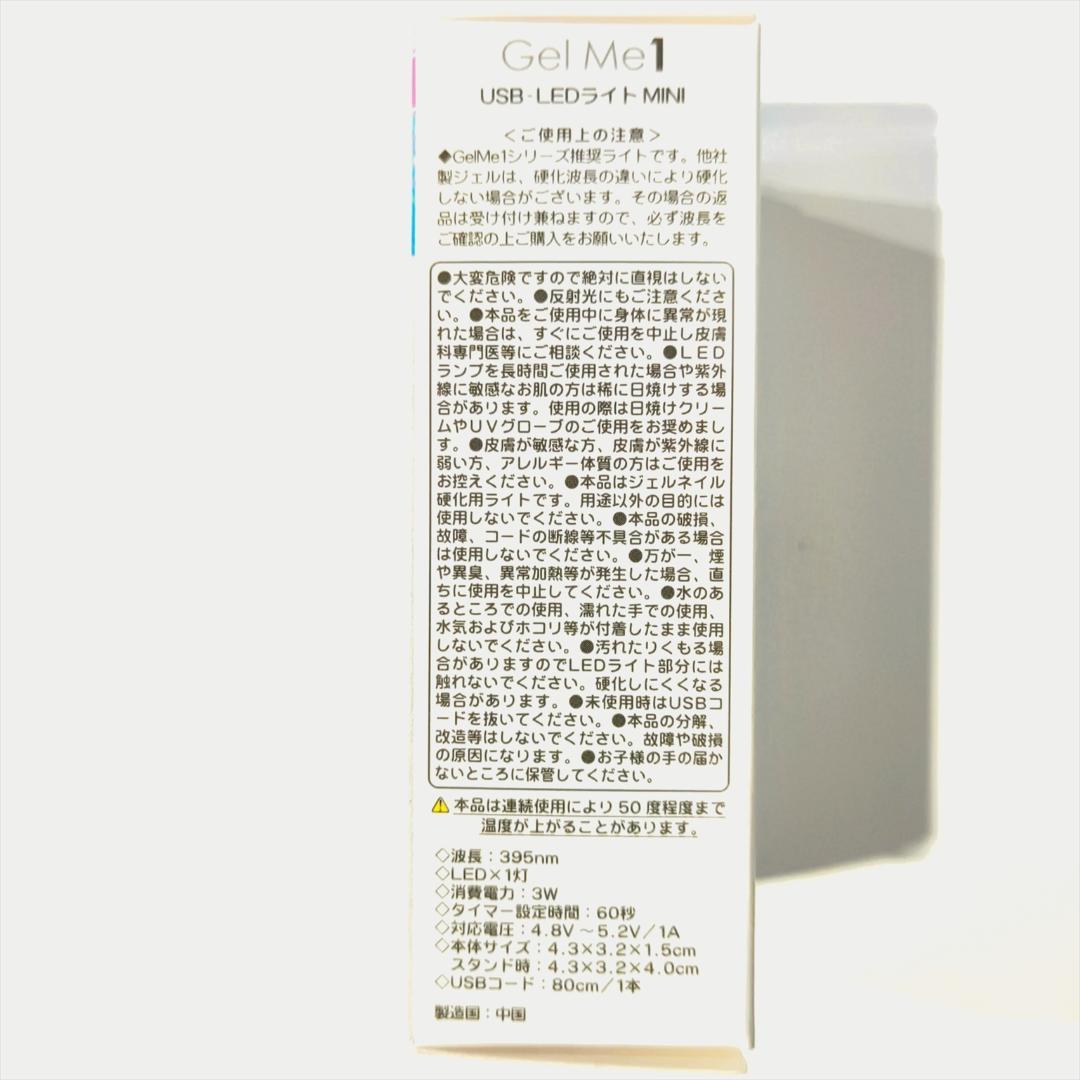 Gel Me1
USB-LEDライト MINI
＜ご使用上の注意＞
◆GelMe1シリーズ推奨ライトです。他社
製ジェルは、硬化波長の違いにより硬化
しない場合がございます。その場合の返
品は受け付け兼ねますので、必ず波長を
ご確認の上ご購入をお願いいたします。
●大変危険ですので絶対に直視はしない
でください。●反射光にもご注意くださ
い。●本品をご使用中に身体に異常が現
れた場合は、すぐにご使用を中止し皮膚
科専門医等にご相談ください。●ＬＥＤ
ランプを長時間ご使用された場合や紫外
線に敏感なお肌の方は稀に日焼けする場
合があります。使用の際は日焼けクリー
ムやＵＶグローブのご使用をお奨めしま
す。●皮膚が敏感な方、皮膚が紫外線に
弱い方、アレルギー体質の方はご使用を
お控えください。●本品はジェルネイル
硬化用ライトです。用途以外の目的には
使用しないでください。●本品の破損、
故障、コードの断線等不具合がある場合
は使用しないでください。●万が一、煙
や異臭、異常加熱等が発生した場合、直
ちに使用を中止してください。●水のあ
るところでの使用、濡れた手での使用、
水気およびホコリ等が付着したまま使用
しないでください。●汚れたりくもる場
合がありますのでLEDライト部分には
触れないでください。硬化しにくくなる
場合があります。●未使用時はUSBコ
ードを抜いてください。●本品の分解、
改造等はしないでください。故障や破損
の原因になります。●お子様の手の届か
ないところに保管してください。
⚠本品は連続使用により50度程度まで
温度が上がることがあります。
◇波長：395nm
◇LED×1灯
◇消費電力：3W
◇タイマー設定時間：60秒
◇対応電圧：4.8V～5.2V／1A
◇本体サイズ：4.3×3.2×1.5cm
スタンド時：4.3×3.2×4.0cm
◇USBコード：80cm／1本
製造国：中国